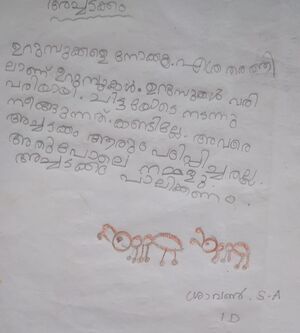 അച്ചടക്കം
ഉറുമ്പുകളെ നോക്കൂ. എത്ര തരത്തി
ലാണ് ഉറുമ്പുകൾ. ഉറുമ്പുകൾ വരി
വരിയായി. ചിട്ടയോടെ നടന്നു
നീങ്ങുന്നത്. കണ്ടില്ലേ. അവരെ
അച്ചടക്കം ആരും പഠിപ്പിച്ചതല്ല.
അതുപോലെ നമ്മളും
അച്ചടക്കം പാലിക്കണം.
ശ്രാവൺ. S-A
1 D